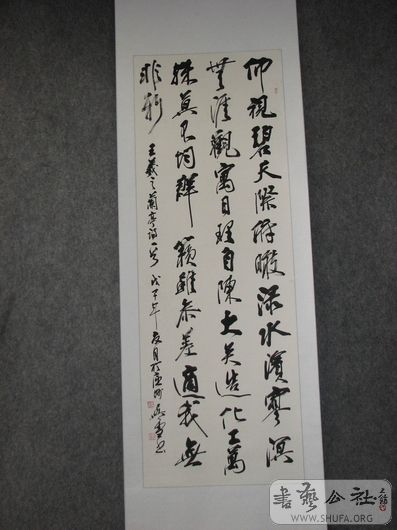 仰視碧天際俯瞰淥水濱寥
無涯觀寓目理自陳大矣造化工萬
殊莫不均群籟雖參差適我無
非新
王羲之蘭亭詩一首 戊子年夏月於
書藝公社
WWW.SHUFA.ORG